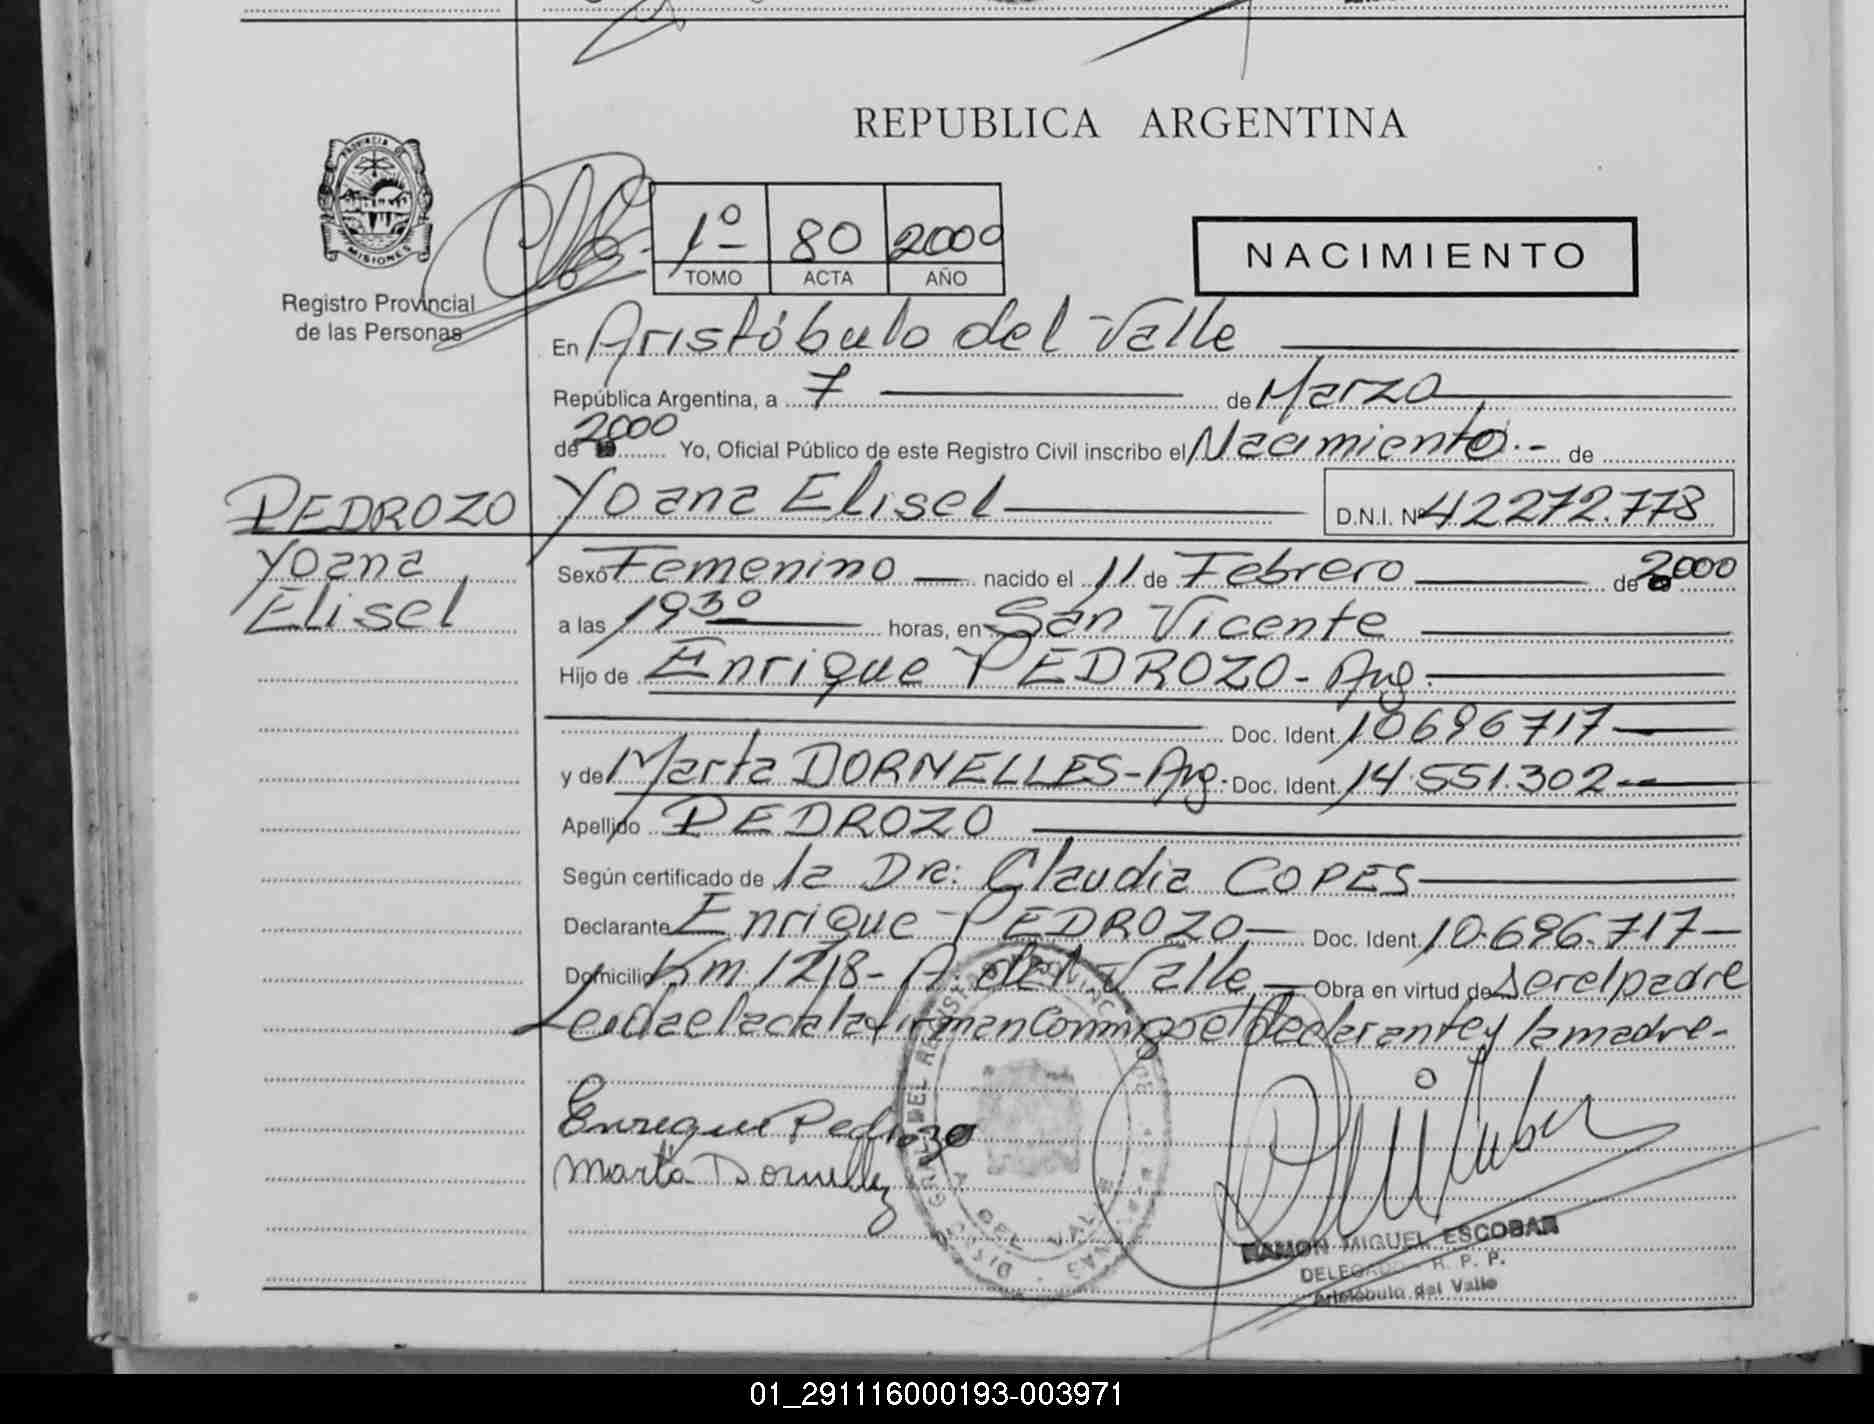 REPUBLICA ARGENTINA
PROVINCIA DE
MISIONES
Registro Provincial
de las Personas
1º 80 2000
TOMO ACTA AÑO
NACIMIENTO
En Aristóbulo del Valle
República Argentina, a 7 de Marzo
de 2000 Yo, Oficial Público de este Registro Civil inscribo el Nacimiento.- de
PEDROZO Yoana Elisel D.N.I. Nº 42272.778
Yoana
Elisel
Sexo Femenino nacido el 11 de Febrero de 2000
a las 19³⁰ horas, en San Vicente
Hijo de Enrique PEDROZO - Arg.
Doc. Ident. 10696717
y de Marta DORNELLES - Arg. Doc. Ident. 14.551.302
Apellido PEDROZO
Según certificado de la Dra: Claudia COPES
Declarante Enrique PEDROZO Doc. Ident. 10.696.717
Domicilio Km. 1218 - A. del Valle Obra en virtud de ser el padre
Leida el acta la firman conmigo el declarante y la madre-
Enrique Pedrozo
Marta Dornellez
RAMON MIGUEL ESCOBAR
DELEGADO - R. P. P.
Aristóbulo del Valle
01_291116000193-003971